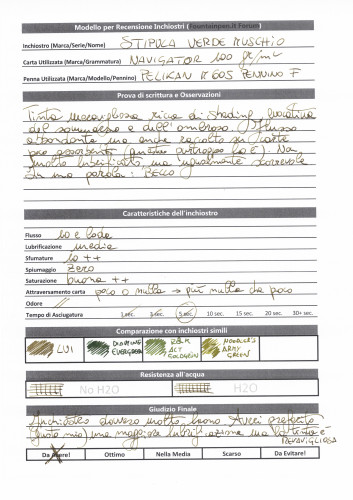 Modello per Recensione Inchiostri (Fountainpen.it Forum)
Inchiostro (Marca/Serie/Nome) STIPULA VERDE MUSCHIO
Carta Utilizzata (Marca/Grammatura) NAVIGATOR 100 gr/m²
Penna Utilizzata (Marca/Modello/Pennino) PELIKAN M605 PENNINO F
Prova di scrittura e Osservazioni
Tinta meravigliosa ricca di shading
del sommerso e dell'ombroso. Flusso
abbondante ma anche su carte
poco assorbenti (questa purtroppo lo è). Non
molto lubrificato ma ugualmente scorrevole
In una parola: BELLO
Caratteristiche dell'inchiostro
Flusso 10 e lode
Lubrificazione media
Sfumature 10 ++
Spiumaggio zero
Saturazione buona ++
Attraversamento carta poco o nulla → più nulla che poco
Odore /
Tempo di Asciugatura 1 sec. 3 sec. 5 sec. 10 sec. 15 sec. 20 sec. 30+ sec.
Comparazione con inchiostri simili
LUI DIAMINE EVERGREEN R&K ALT GOLDGRÜN NOODLER'S ARMY GREEN
Resistenza all'acqua
No H2O H2O
Giudizio Finale
Inchiostro davvero molto buono. Avrei preferito
(gusto mio) una maggiore lubrificazione ma la tinta è
MERAVIGLIOSA
Da Avere! Ottimo Nella Media Scarso Da Evitare!